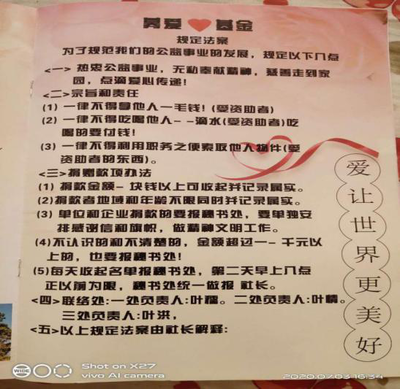 美爱❤基金
规定法案
为了规范我们的公益事业的发展，规定以下几点
<一> 热忠公益事业，无私奉献精神，慈善走到家
园，点滴爱心传递！
<二>宗旨和责任
(1) 一律不得拿他人一毛钱！(受资助者)
(2) 一律不得吃喝他人--滴水(受资助者)吃
喝的要付钱！
(3) 一律不得利用职务之便索取他人物件(受
资助者的东西)。
<三>捐赠款项办法
(1) 捐款金额-块钱以上可收起并记录属实。
(2)捐款者地域和年龄不限同时并记录属实。
(3) 单位和企业捐款的要报秘书处，要单独安
排感谢信和旗帜，做精神文明工作。
(4)不认识的和不清楚的，金额超过一-千元以
上的，也要报秘书处！
(5)每天收起名单报秘书处，第二天早上八点
正以前为限，秘书处统一做报 社长。
<四>联络处:一处负责人:叶糯。二处负责人:叶精。
三处负责人:叶洪，
<五>以上规定法案由社长解释:
爱让世界更美好
Shot on X27
vivo AI camera
2020.07.03 16:34